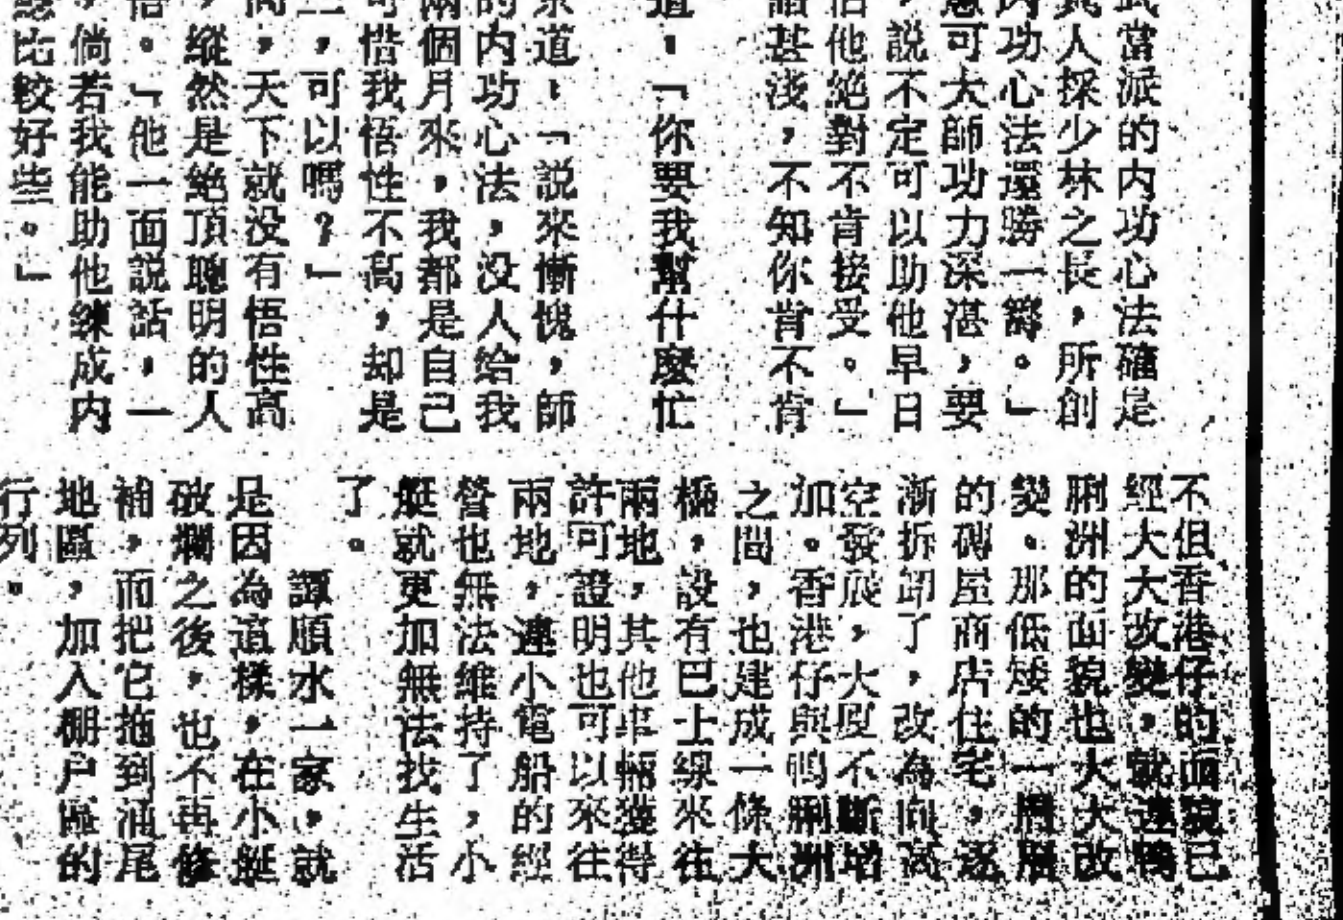 武當派的内功心法確是
真人採少林之長，所創
内功心法還勝一籌。」
慧可大師功力深湛，要
，說不定可以助他早日
怕他絕對不肯接受。」
甚淺，不知你肯不肯
道：「你要我幫什麼忙
道：「説來慚愧，師
的内功心法，没人給我
兩個月來，我都是自己
可惜我悟性不高，却是
，可以嗎？」
高，天下就没有悟性高
，縱然是絶頂聰明的人
悟。」他一面説話，一
，倘若我能助他練成内
比較好些。」
不但香港仔的面貌已
經大大改變，就連鴨
脷洲的面貌也大大改
變。那低矮的一層層
的磚屋商店住宅，逐
漸拆卸了，改為向高
空發展，大厦不斷增
加。香港仔與鴨脷洲
之間，也建成一條大
橋，設有巴士線來往
兩地，其他車輛獲得
許可證明也可以來往
兩地，連小電船的經
營也無法維持了，小
艇就更加無法找生活
了。
譚順水一家，就
是因為這樣，在小艇
破爛之後，也不再修
補，而把它拖到涌尾
地區，加入棚户區的
行列。